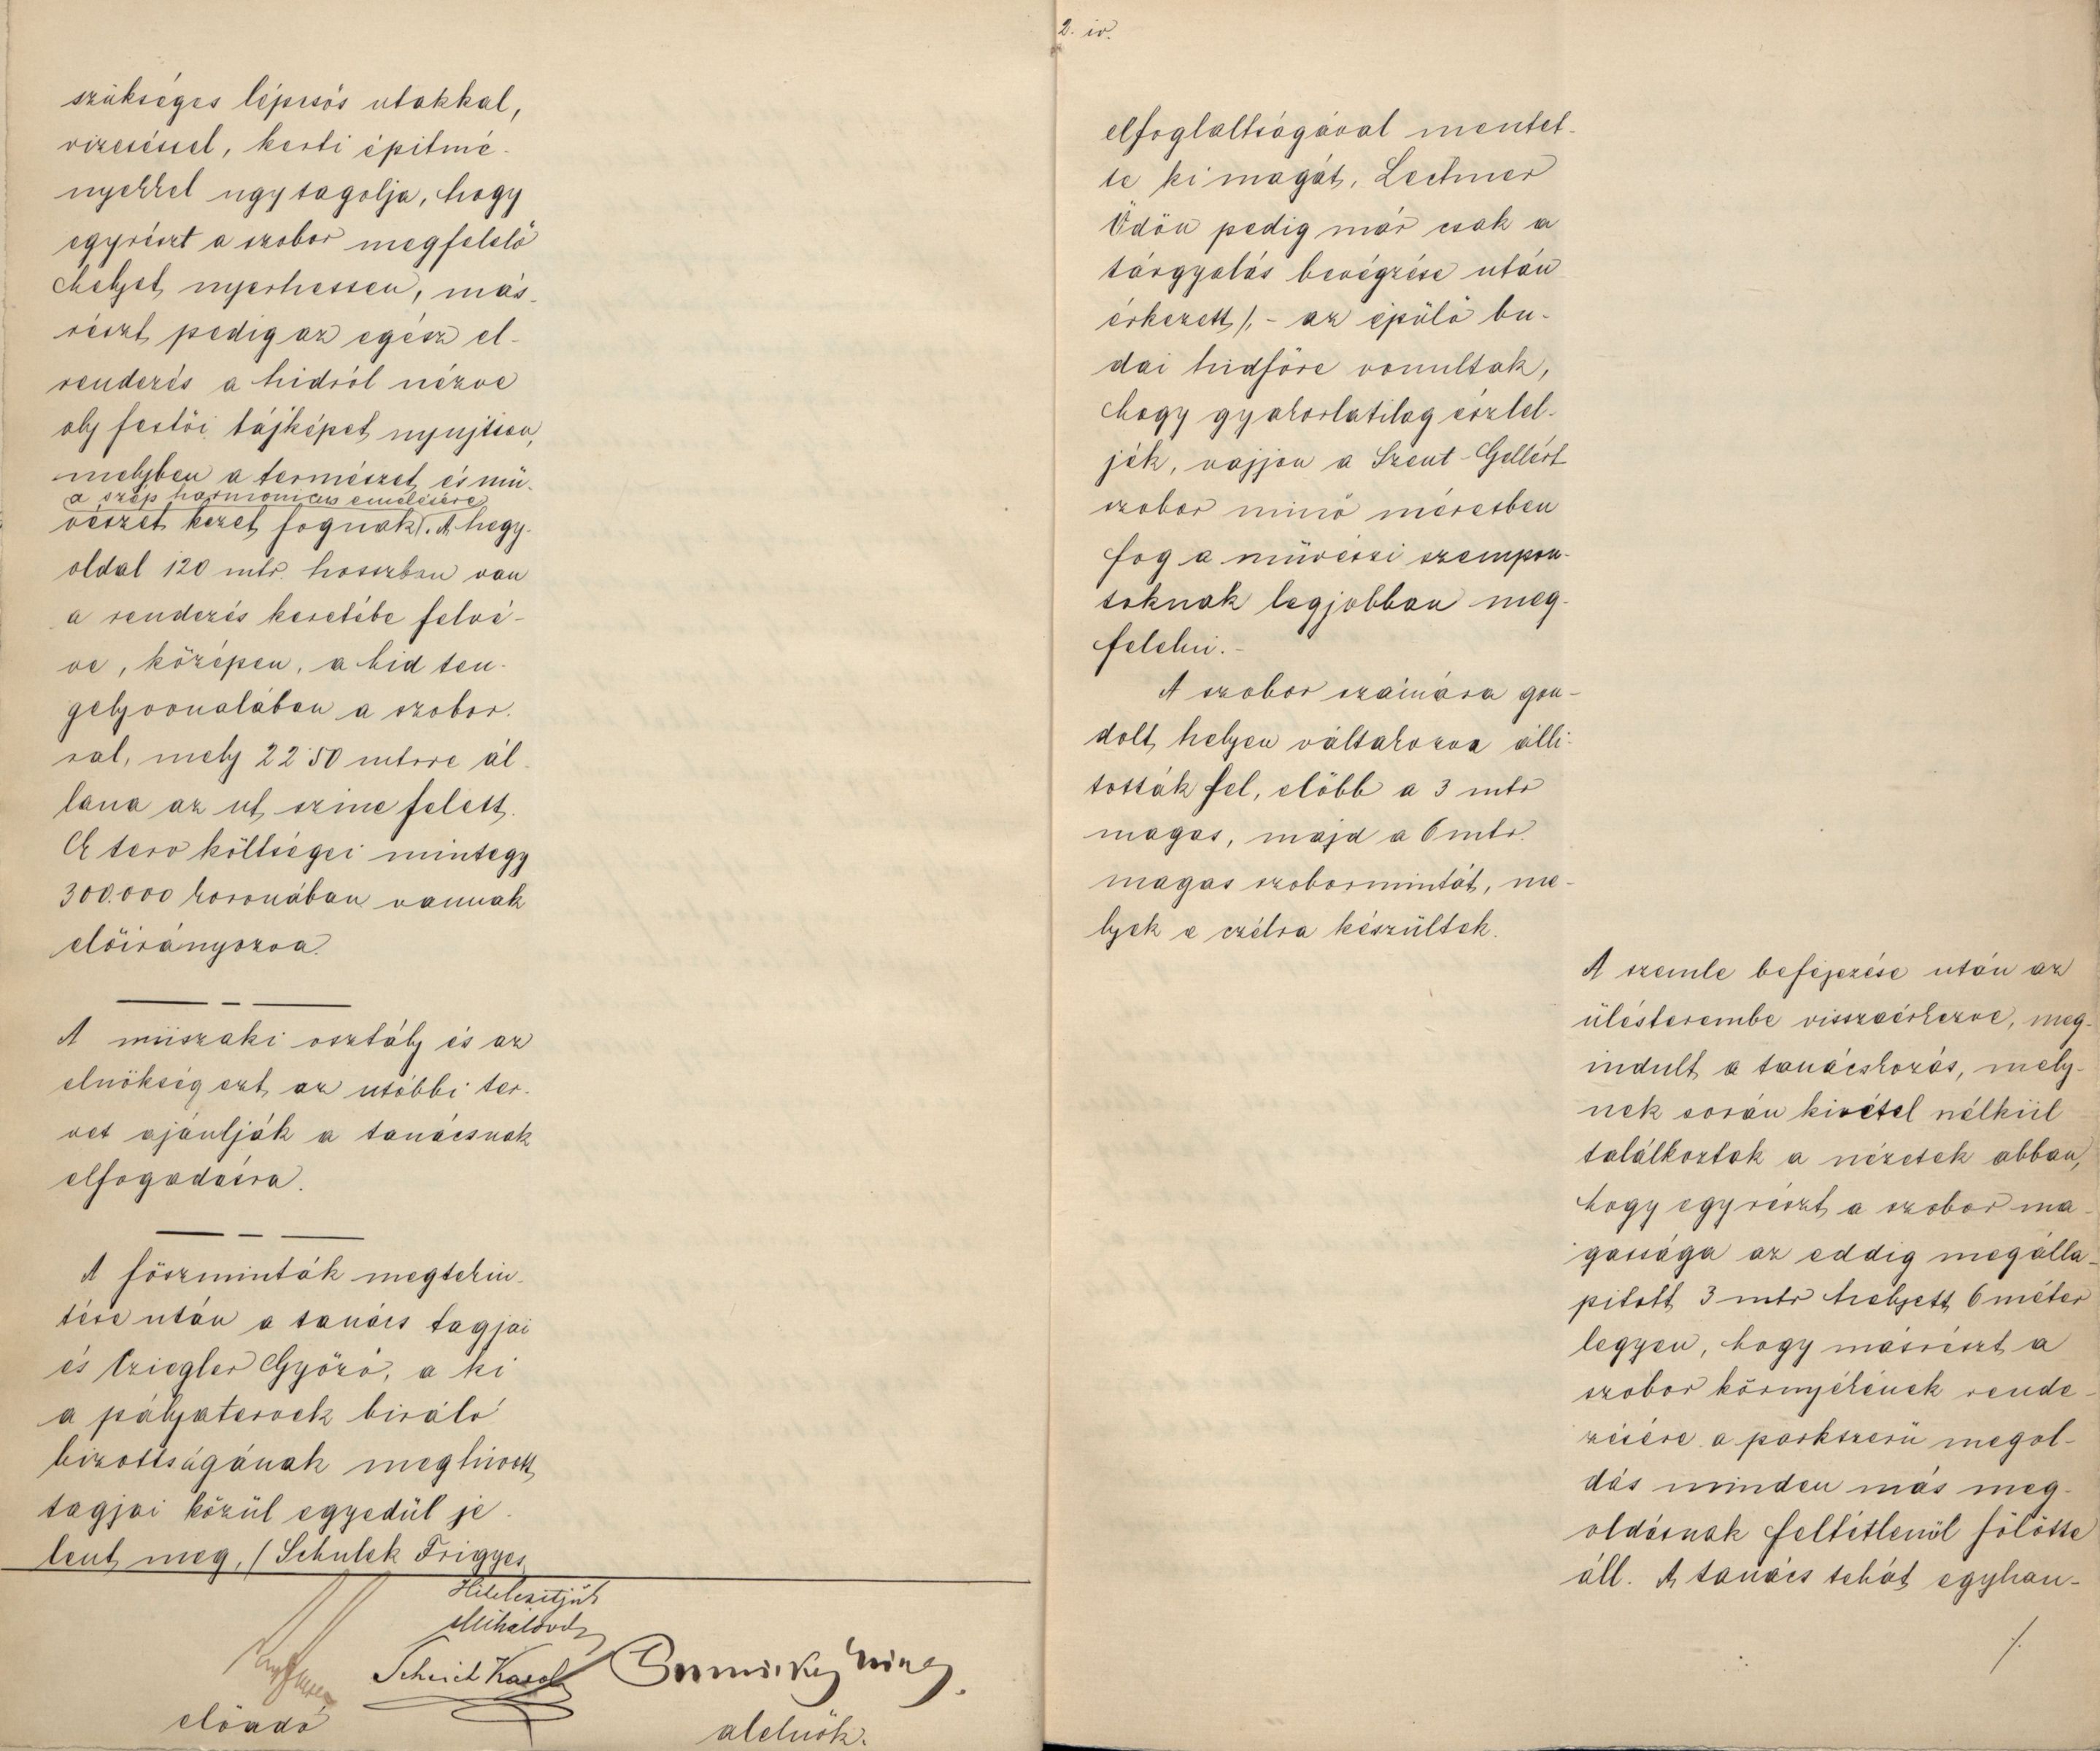 szükséges lépcsős utakkal,
vizeséssel, kerti épitmé-
nyekkel ugy tagolja, hogy
egyrészt a szobor megfelelő
helyet nyerhessen, más-
részt pedig az egész el-
rendezés a hidról nézve
oly festői tájképet nyujtson,
melyben a természet és mü-
a szép harmonicus emelésére
vészet kezet fognak. A hegy-
oldal 120 mtr. hosszban van
a rendezés keretébe felvé-
ve, középen, a hid ten-
gelyvonalában a szobor-
ral, mely 22.50 mtrre ál-
lana az ut szine felett.
A terv költségei mintegy
300.000 koronában vannak
előirányozva.
A müszaki osztály és az
elnökség ezt az utóbbi ter-
vet ajánlják a tanácsnak
elfogadásra.
A főszminták megtekin-
tése után a tanács tagjai
és Cziegler Győző, a ki
a pályatervek biráló
bizottságának meghivott
tagjai közül egyedül je-
lent meg, /Schulek Frigyes
Hitelesitjük
Mihalovd
Schrick Karol
előadó
alelnök.
2. iv.
elfoglaltságával mentet-
te ki magát, Lechner
Ödön pedig már csak a
tárgyalás bevégzése után
érkezett/, - az épülő bu-
dai hidfőre vonultak,
hogy gyakorlatilag észlel-
jék, vajjon a Szent-Gellért
szobor minő méretben
fog a müvészi szempon-
toknak legjobban meg-
felelni.-
A szobor számára gon-
dolt helyen váltakozva álli-
tották fel, előbb a 3 mtr
magas, majd a 6 mtr.
magas szobormintát, me-
lyek e czélra készültek.
A szemle befejezése után az
ülésterembe visszaérkezve, meg-
indult a tanácskozás, mely-
nek során kivétel nélkül
találkoztak a nézetek abban,
hogy egyrészt a szobor ma-
gassága az eddig megálla-
pitott 3 mtr helyett 6 méter
legyen, hogy másrészt a
szobor környékének rende-
zésére a parkszerü megol-
dás minden más meg-
oldásnak feltétlenül fölötte
áll. A tanács tehát egyhan-
/.